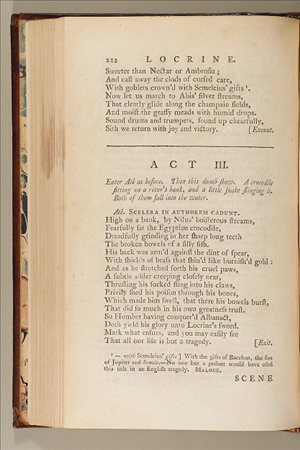 222 LOCRINE.
Sweeter than Nectar or Ambrosia;
And cast away the clods of cursed care,
With goblets crown'd with Semeleius' gifts ¹.
Now let us march to Abis' silver streams,
That clearly glide along the champain fields,
And moist the grassy meads with humid drops.
Sound drums and trumpets, sound up chearfully,
Sith we return with joy and victory. [Exeunt.
ACT III.
Enter Até as before. Then this dumb show. A crocodile
sitting on a river's bank, and a little snake stinging it.
Both of them fall into the water.
Até. SCELERA IN AUTHOREM CADUNT.
High on a bank, by Nilus' boisterous streams,
Fearfully sat the Egyptian crocodile,
Dreadfully grinding in her sharp long teeth
The broken bowels of a silly fish.
His back was arm'd against the dint of spear,
With shields of brass that shin'd like burnish'd gold:
And as he stretched forth his cruel paws,
A subtle adder creeping closely near,
Thrusting his forked sting into his claws,
Privily shed his poison through his bones,
Which made him swell, that there his bowels burst,
That did so much in his own greatness trust.
So Humber having conquer'd Albanact,
Doth yield his glory unto Locrine's sword.
Mark what ensues, and you may easily see
That all our life is but a tragedy. [Exit.
¹ — with Semeleius' gifts] With the gifts of Bacchus, the son
of Jupiter and Semele.—No one but a pedant would have used
this title in an English tragedy. MALONE.
SCENE